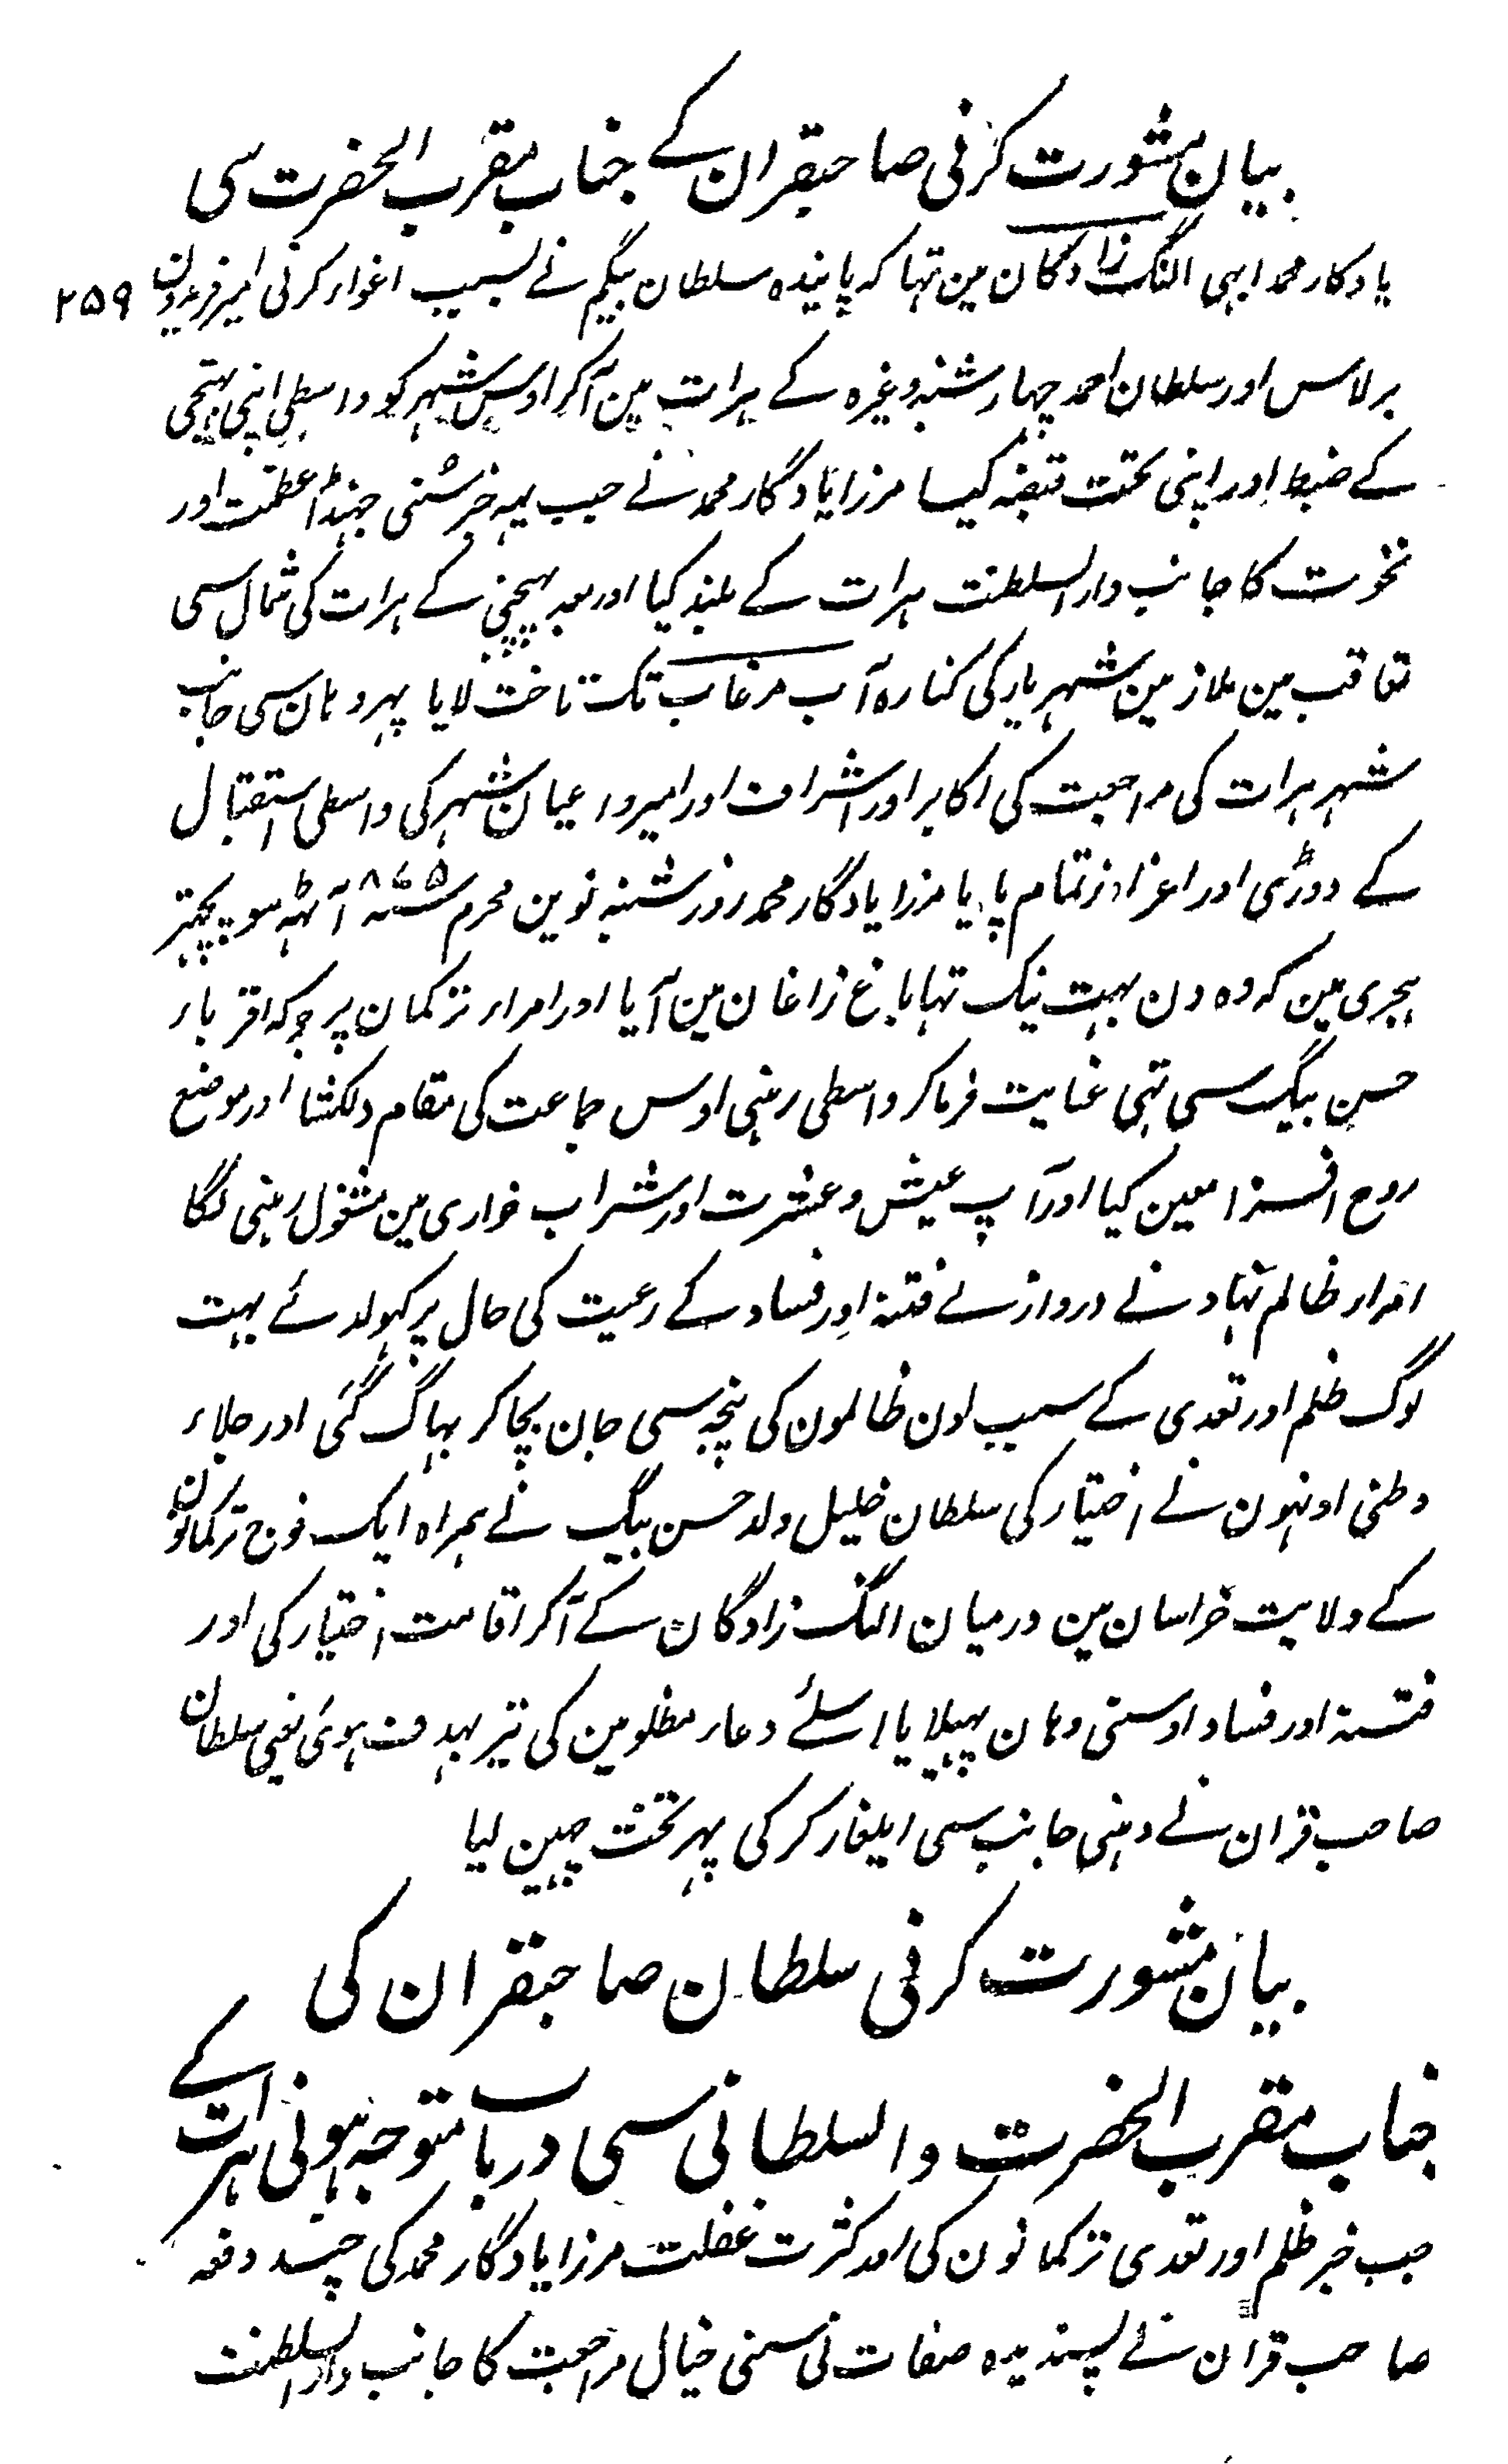 بیان مشورت کرنی صاحبقران کے جناب مقرب الحضرت سی
یادکار محمد ابہی النگ زادکان مین تہا کہ پایندہ سلطان بیگم نے بسبب اغوار کرنی امیر فریدون ۲۵۹
برلاس اور سلطان احمد چہار شنبہ وغیرہ کے ہرات مین آکر اوس شہر کو واسطی اپنی بہتیجی
کے ضبط اور اپنی تحت قبضہ کیا مرزا یادگار محمد نے جب یہہ خبر سنی جہنڈا عظمت اور
نخوت کا جانب دار السلطنت ہرات کے بلند کیا اور بعد پہچنی کے ہرات کی شمال سی
تعاقب مین ملازمین شہریار کی کنارہ آب مرغاب تک تاخت لایا پہر وہان سی جانب
شہر ہرات کی مراجعت کی اکابر اور اشراف اور امیر و اعیان شہر کی واسطی استقبال
کے دوڑی اور اعزاز تمام پایا مرزا یادگار محمد روز شنبہ نوین محرم سنہ ۸۷۵ آٹہہ سو پچہتر
ہجری مین کہ وہ دن بہت نیک تہا باغ زاغان مین آیا اور امراء ترکمان پر جو کہ اقرباء
حسن بیگ سی تہی عنایت فرماکر واسطی رہنی اوس جماعت کی مقام دلکشا اور موضع
روح افزا معین کیا اور آپ عیش و عشرت اور شراب خواری مین مشغول رہنی لگا
امراء ظالم نہاد نے دروازے فتنہ اور فساد کے رعیت کی حال پر کہولدئے بہت
لوگ ظلم اور تعدی کے سبب اون ظالمون کی پنجہ سی جان بچاکر بہاگ گئی اور جلاء
وطنی اونہون نے اختیار کی سلطان خلیل ولد حسن بیگ نے ہمراہ ایک فوج ترکمانون
کے ولایت خراسان مین درمیان النگ زادگان کے آکر اقامت اختیار کی اور
فتنہ اور فساد اوسنی وہان پہیلایا اسلئے دعاء مظلومین کی تیر بہدف ہوئی یعنی سلطان
صاحب قران نے دہنی جانب سی ایلغار کر کی پہر تخت چہین لیا
بیان مشورت کرنی سلطان صاحبقران کی
جناب مقرب الحضرت والسلطانی سی درباب متوجہ ہونی ہرات کے
جب خبر ظلم اور تعدی ترکمانون کی اور کثرت غفلت مرزا یادگار محمد کی چند دفعہ
صاحب قران نے پسندیدہ صفات نی سنی خیال مراجعت کا جانب دار السلطنت